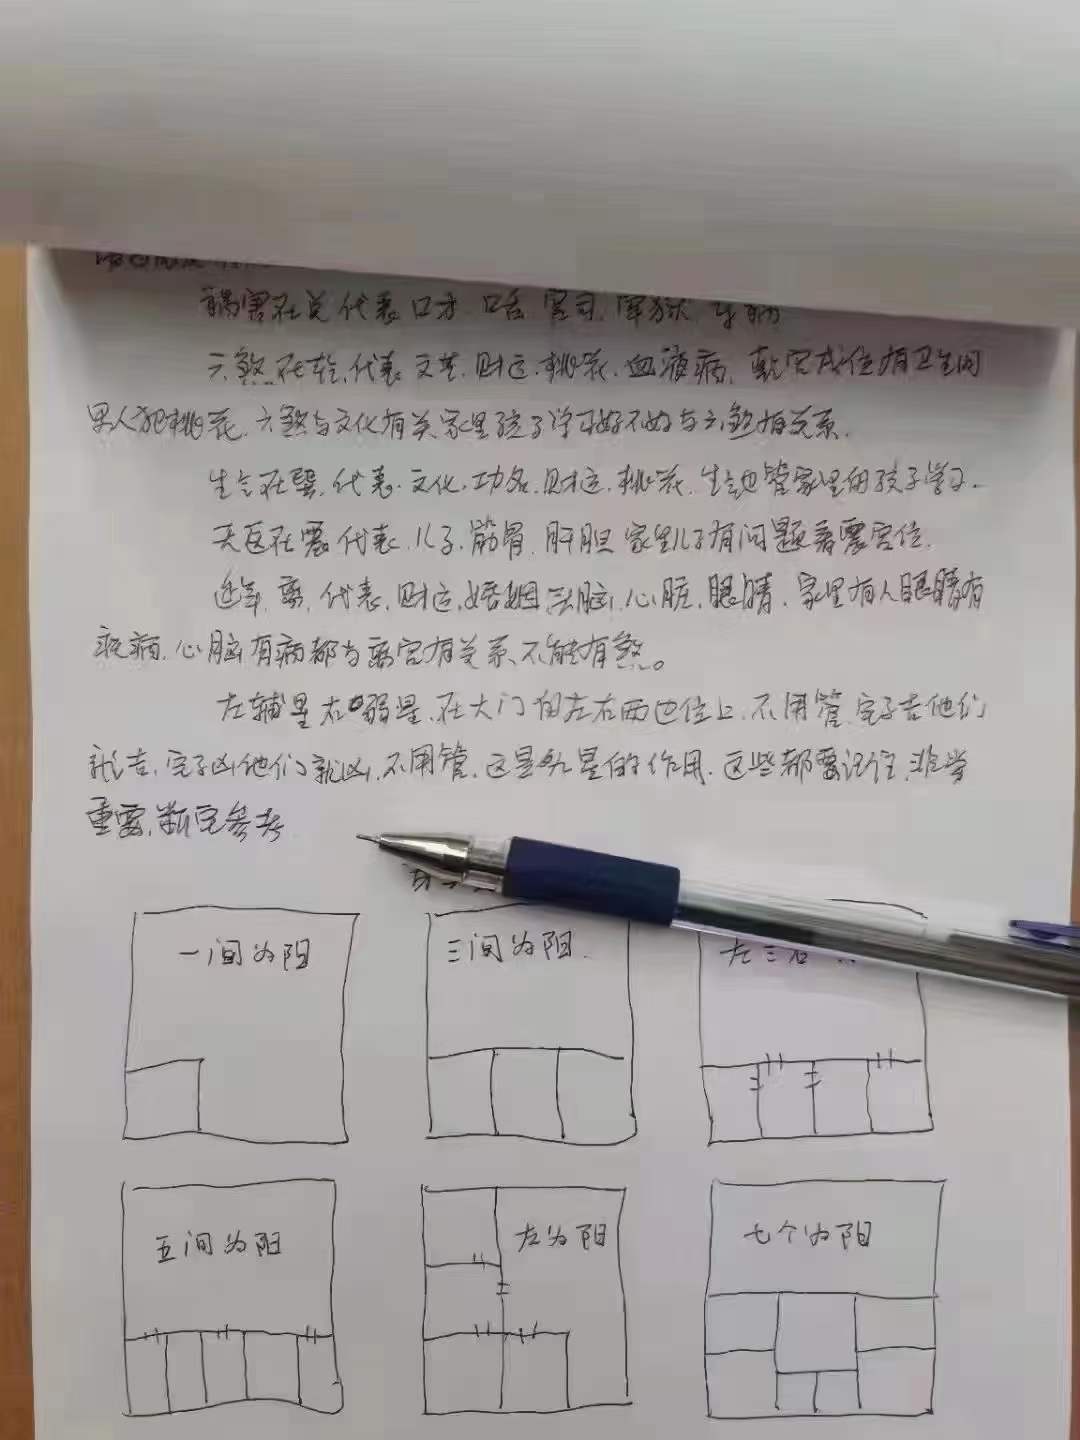 祸害在兑代表口才.口舌.官司.牢狱.牙病
六煞在乾.代表文艺.财运.桃花.血液病.乾宫戌位有卫生间
男人犯桃花.六煞与文化有关家里孩子学习好不好与六煞有关系.
生气在巽.代表.文化.功名.财运.桃花.生气也管家里的孩子学习.
天医在震代表.儿子.筋骨.肝胆家里儿子有问题看震宫位.
延年.离.代表.财运.婚姻.头脑.心脏.眼睛.家里有人眼睛有
疾病.心脑有病都与离宫有关系.不能有煞。
左辅星右弼星.在大门的左右两边位上.不用管.宅子吉他们
就吉.宅子凶他们就凶.不用管.这是九星的作用.这些都要记住.非常
重要.断宅参考.
一间为阳
三间为阳.
左三右
五间为阳
左为阳
七个为阳